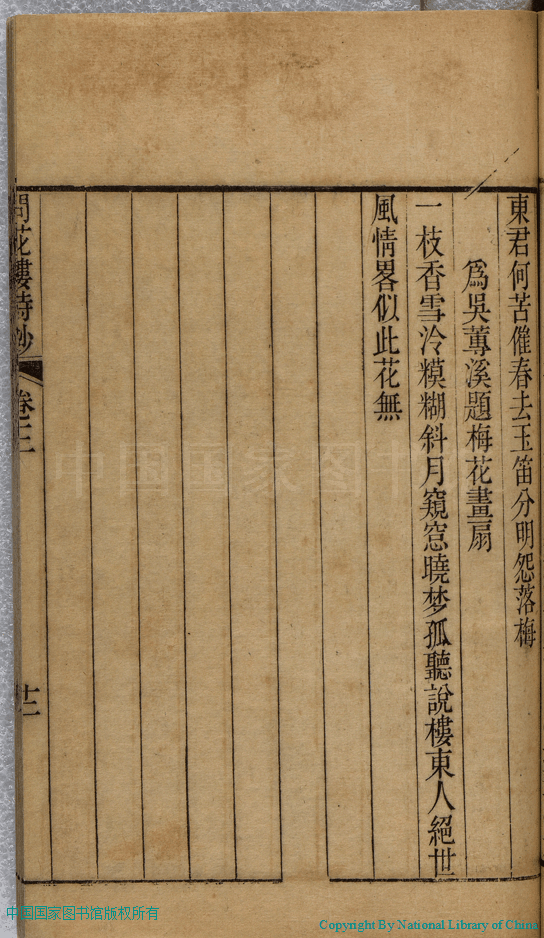 東君何苦催春去玉笛分明怨落梅
爲吳蓴溪題梅花畫扇
一枝香雪冷糢糊斜月窺窓曉梦孤聽說樓東人絕世
風情畧似此花無
問花樓詩鈔 卷三 十二
中国国家图书馆
中国国家图书馆版权所有
Copyright By National Library of China